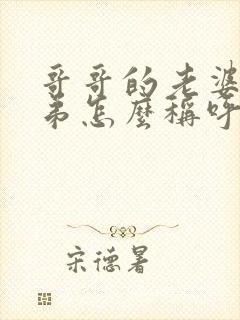 哥哥的老婆
弟怎麼稱呼
宋德暑